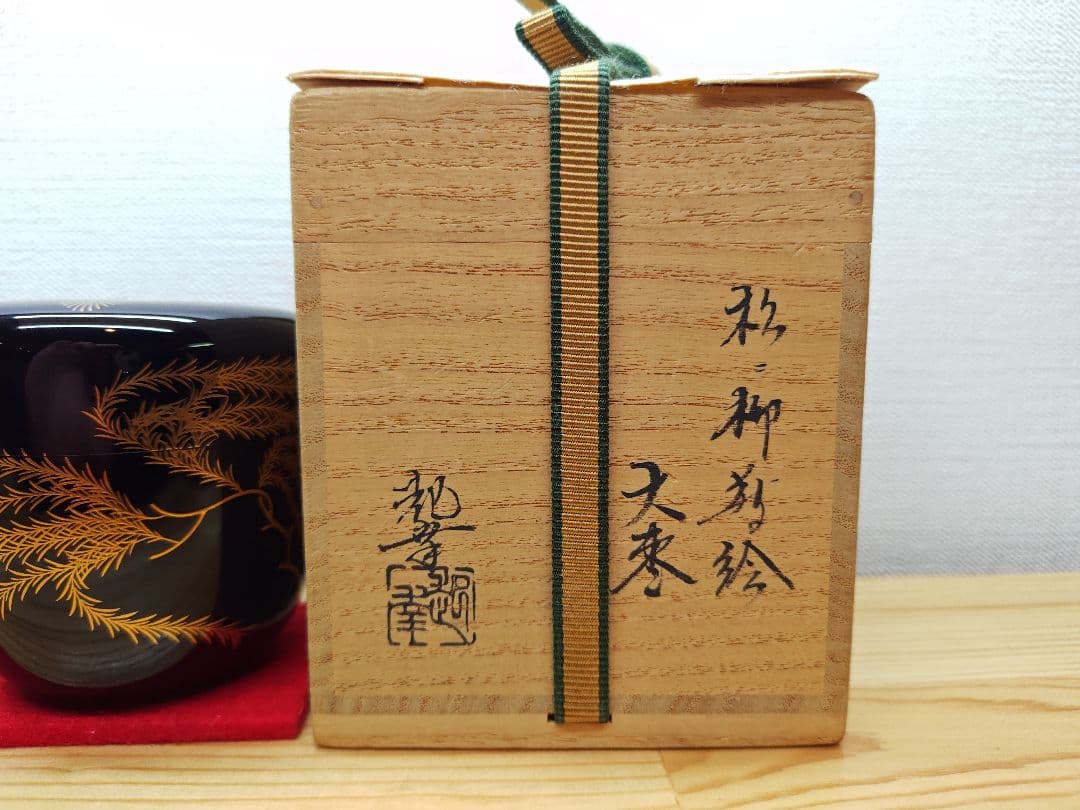 松ニ柳蒔絵
大棗